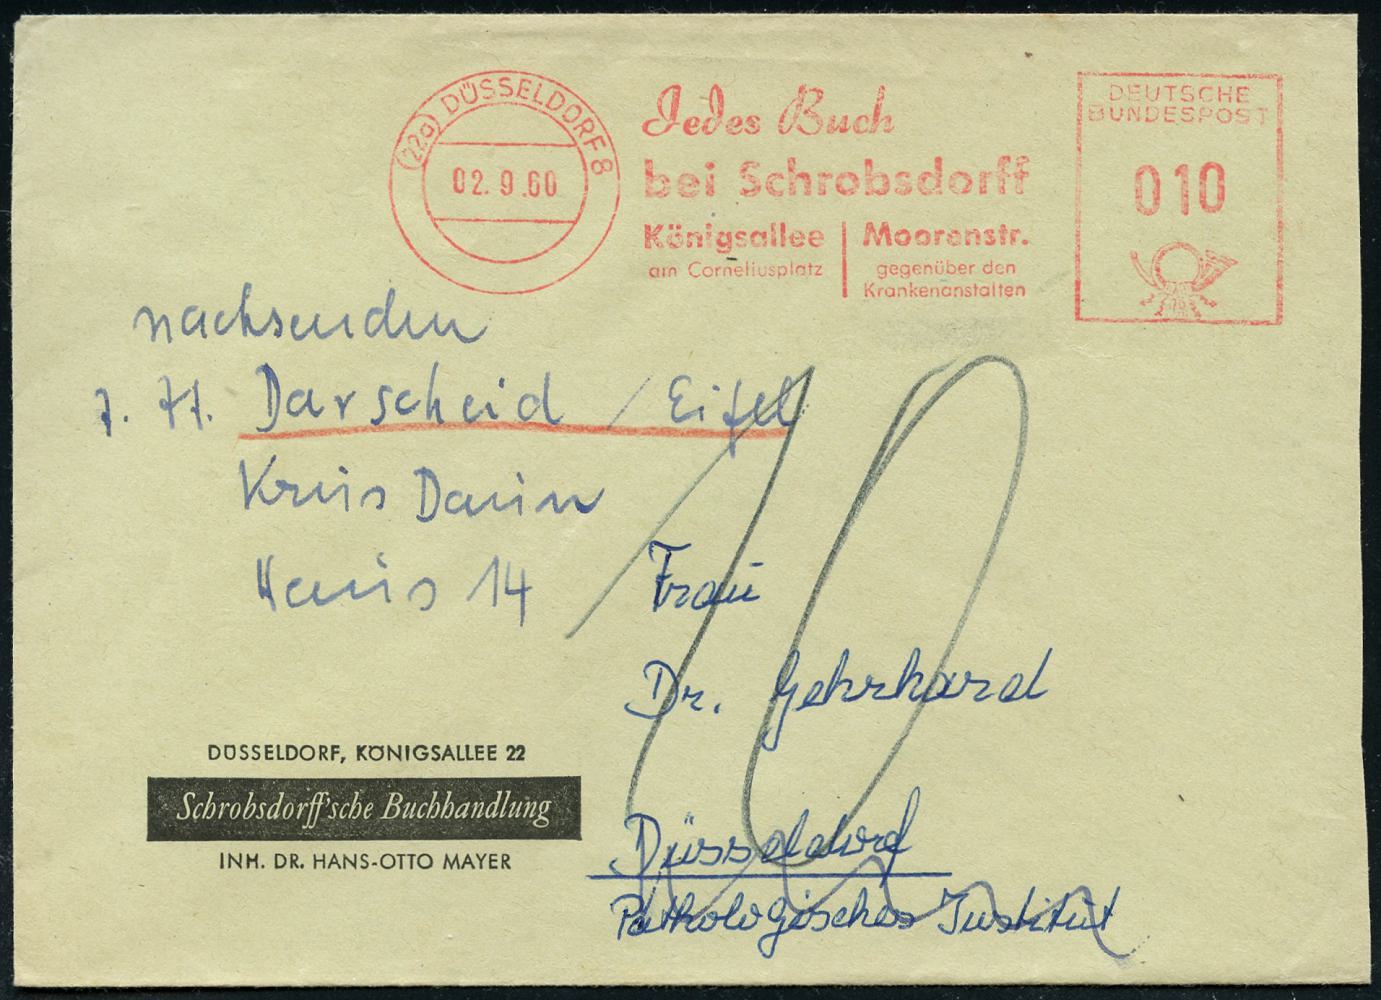 (22a) DÜSSELDORF 8
02.9.60
Jedes Buch
bei Schrobsdorff
Königsallee
am Corneliusplatz
Moorenstr.
gegenüber den
Krankenanstalten
DEUTSCHE
BUNDESPOST
010
nachsenden
z. Zt. Darscheid / Eifel
Kreis Daun
Haus 14
10
Frau
Dr. Gehrhard
Düsseldorf
Pathologisches Institut
DÜSSELDORF, KÖNIGSALLEE 22
Schrobsdorff'sche Buchhandlung
INH. DR. HANS-OTTO MAYER